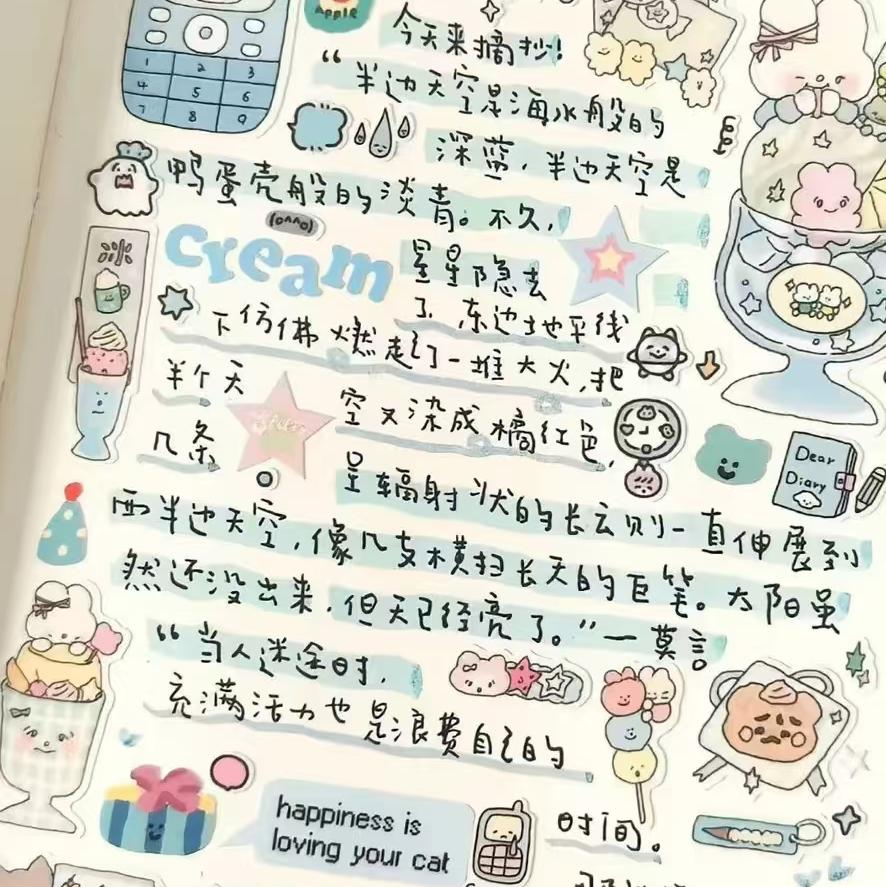 Apple
1 2 3
4 5 6
7 8 9
今天来摘抄!
“半边天空是海水般的
深蓝,半边天空是
鸭蛋壳般的淡青。不久,
cream
星星隐去
了,东边地平线
下仿佛燃起了一堆大火,把
半个天 空又染成橘红色,
几条
呈辐射状的长云则一直伸展到
Dear
Diary
西半边天空,像几支横扫长天的巨笔。太阳虽
然还没出来,但天已经亮了。”一莫言
“当人迷途时,
充满活力也是浪费自己的
时间。
happiness is
loving your cat